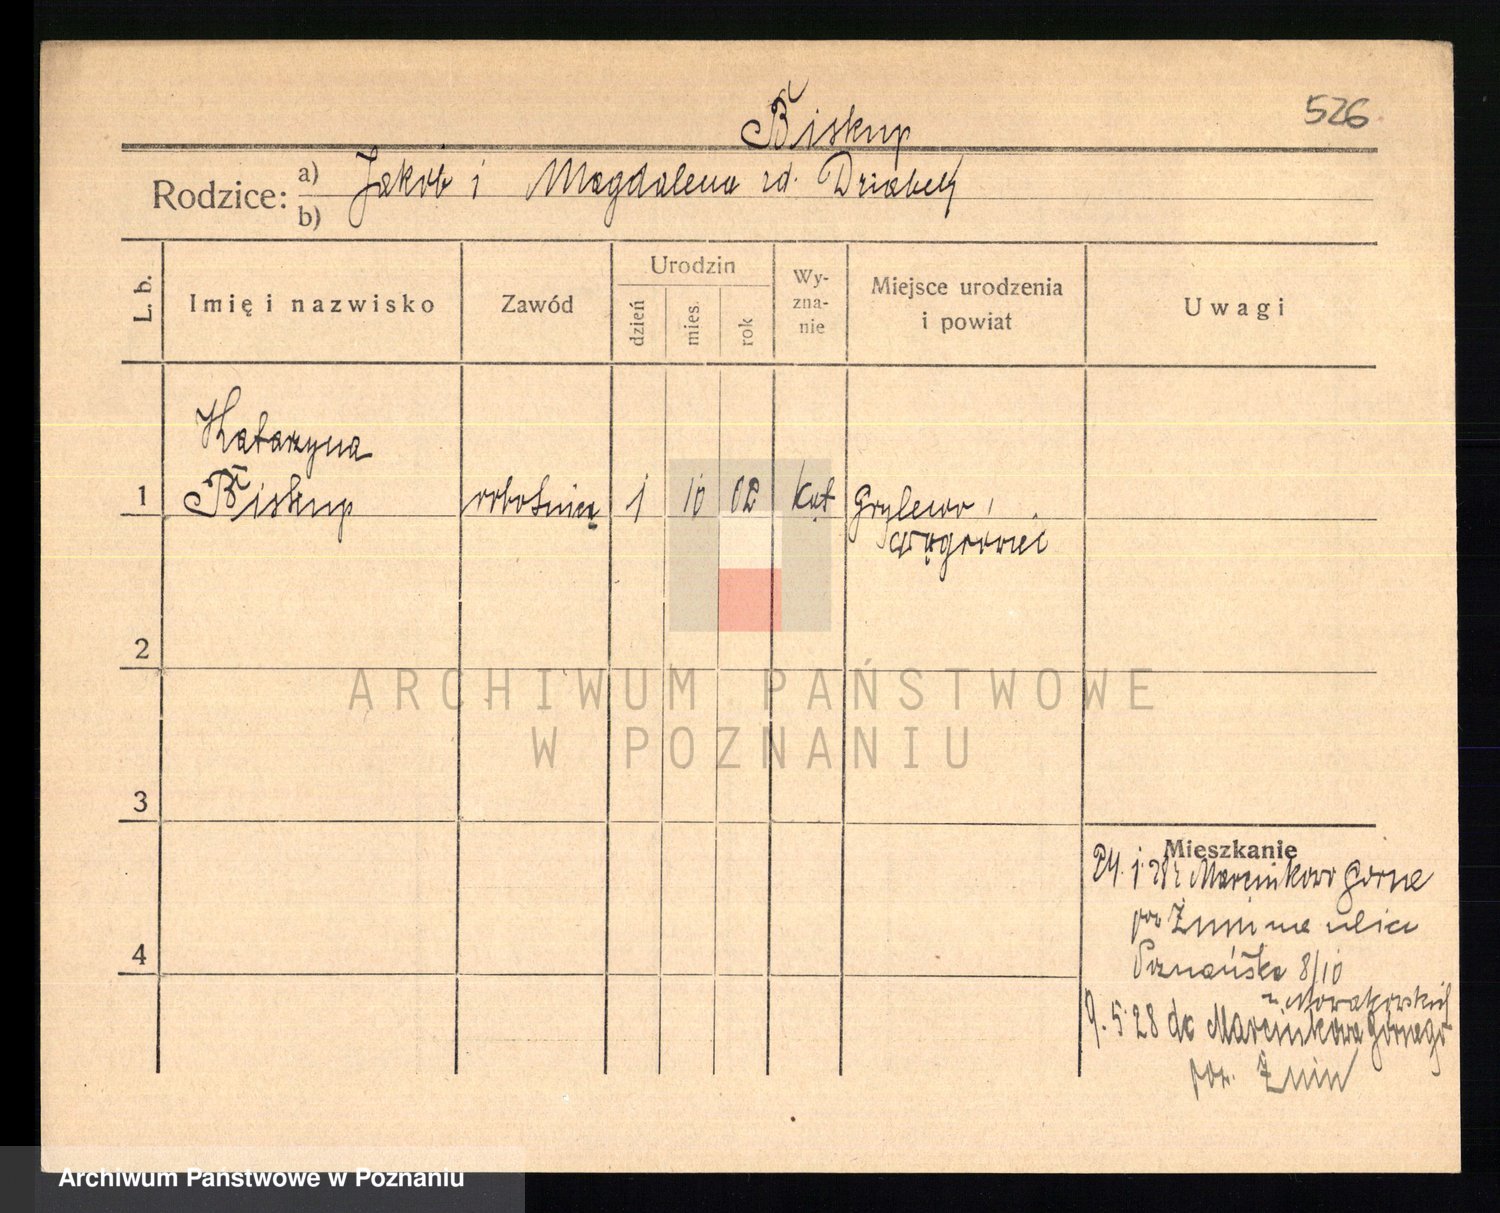 526
Biskup
Rodzice: a) Jakób i Magdalena rd.
b)
L. b.
Imię i nazwisko
Zawód
Urodzin
dzień
mies.
rok
Wy-
zna-
nie
Miejsce urodzenia
i powiat
Uwagi
Katarzyna
1 Biskup robotnica 1 10 02 kat Grylewo,
Wągrowiec
2
3
4
Mieszkanie
24. 1. 28 z Marcinkowo Górne
pow Żnin na ulice
Poznańska 8/10
9. 5. 28 do Marcinkowa Górnego
pow. Żnin
ARCHIWUM PAŃSTWOWE
W POZNANIU
Archiwum Państwowe w Poznaniu